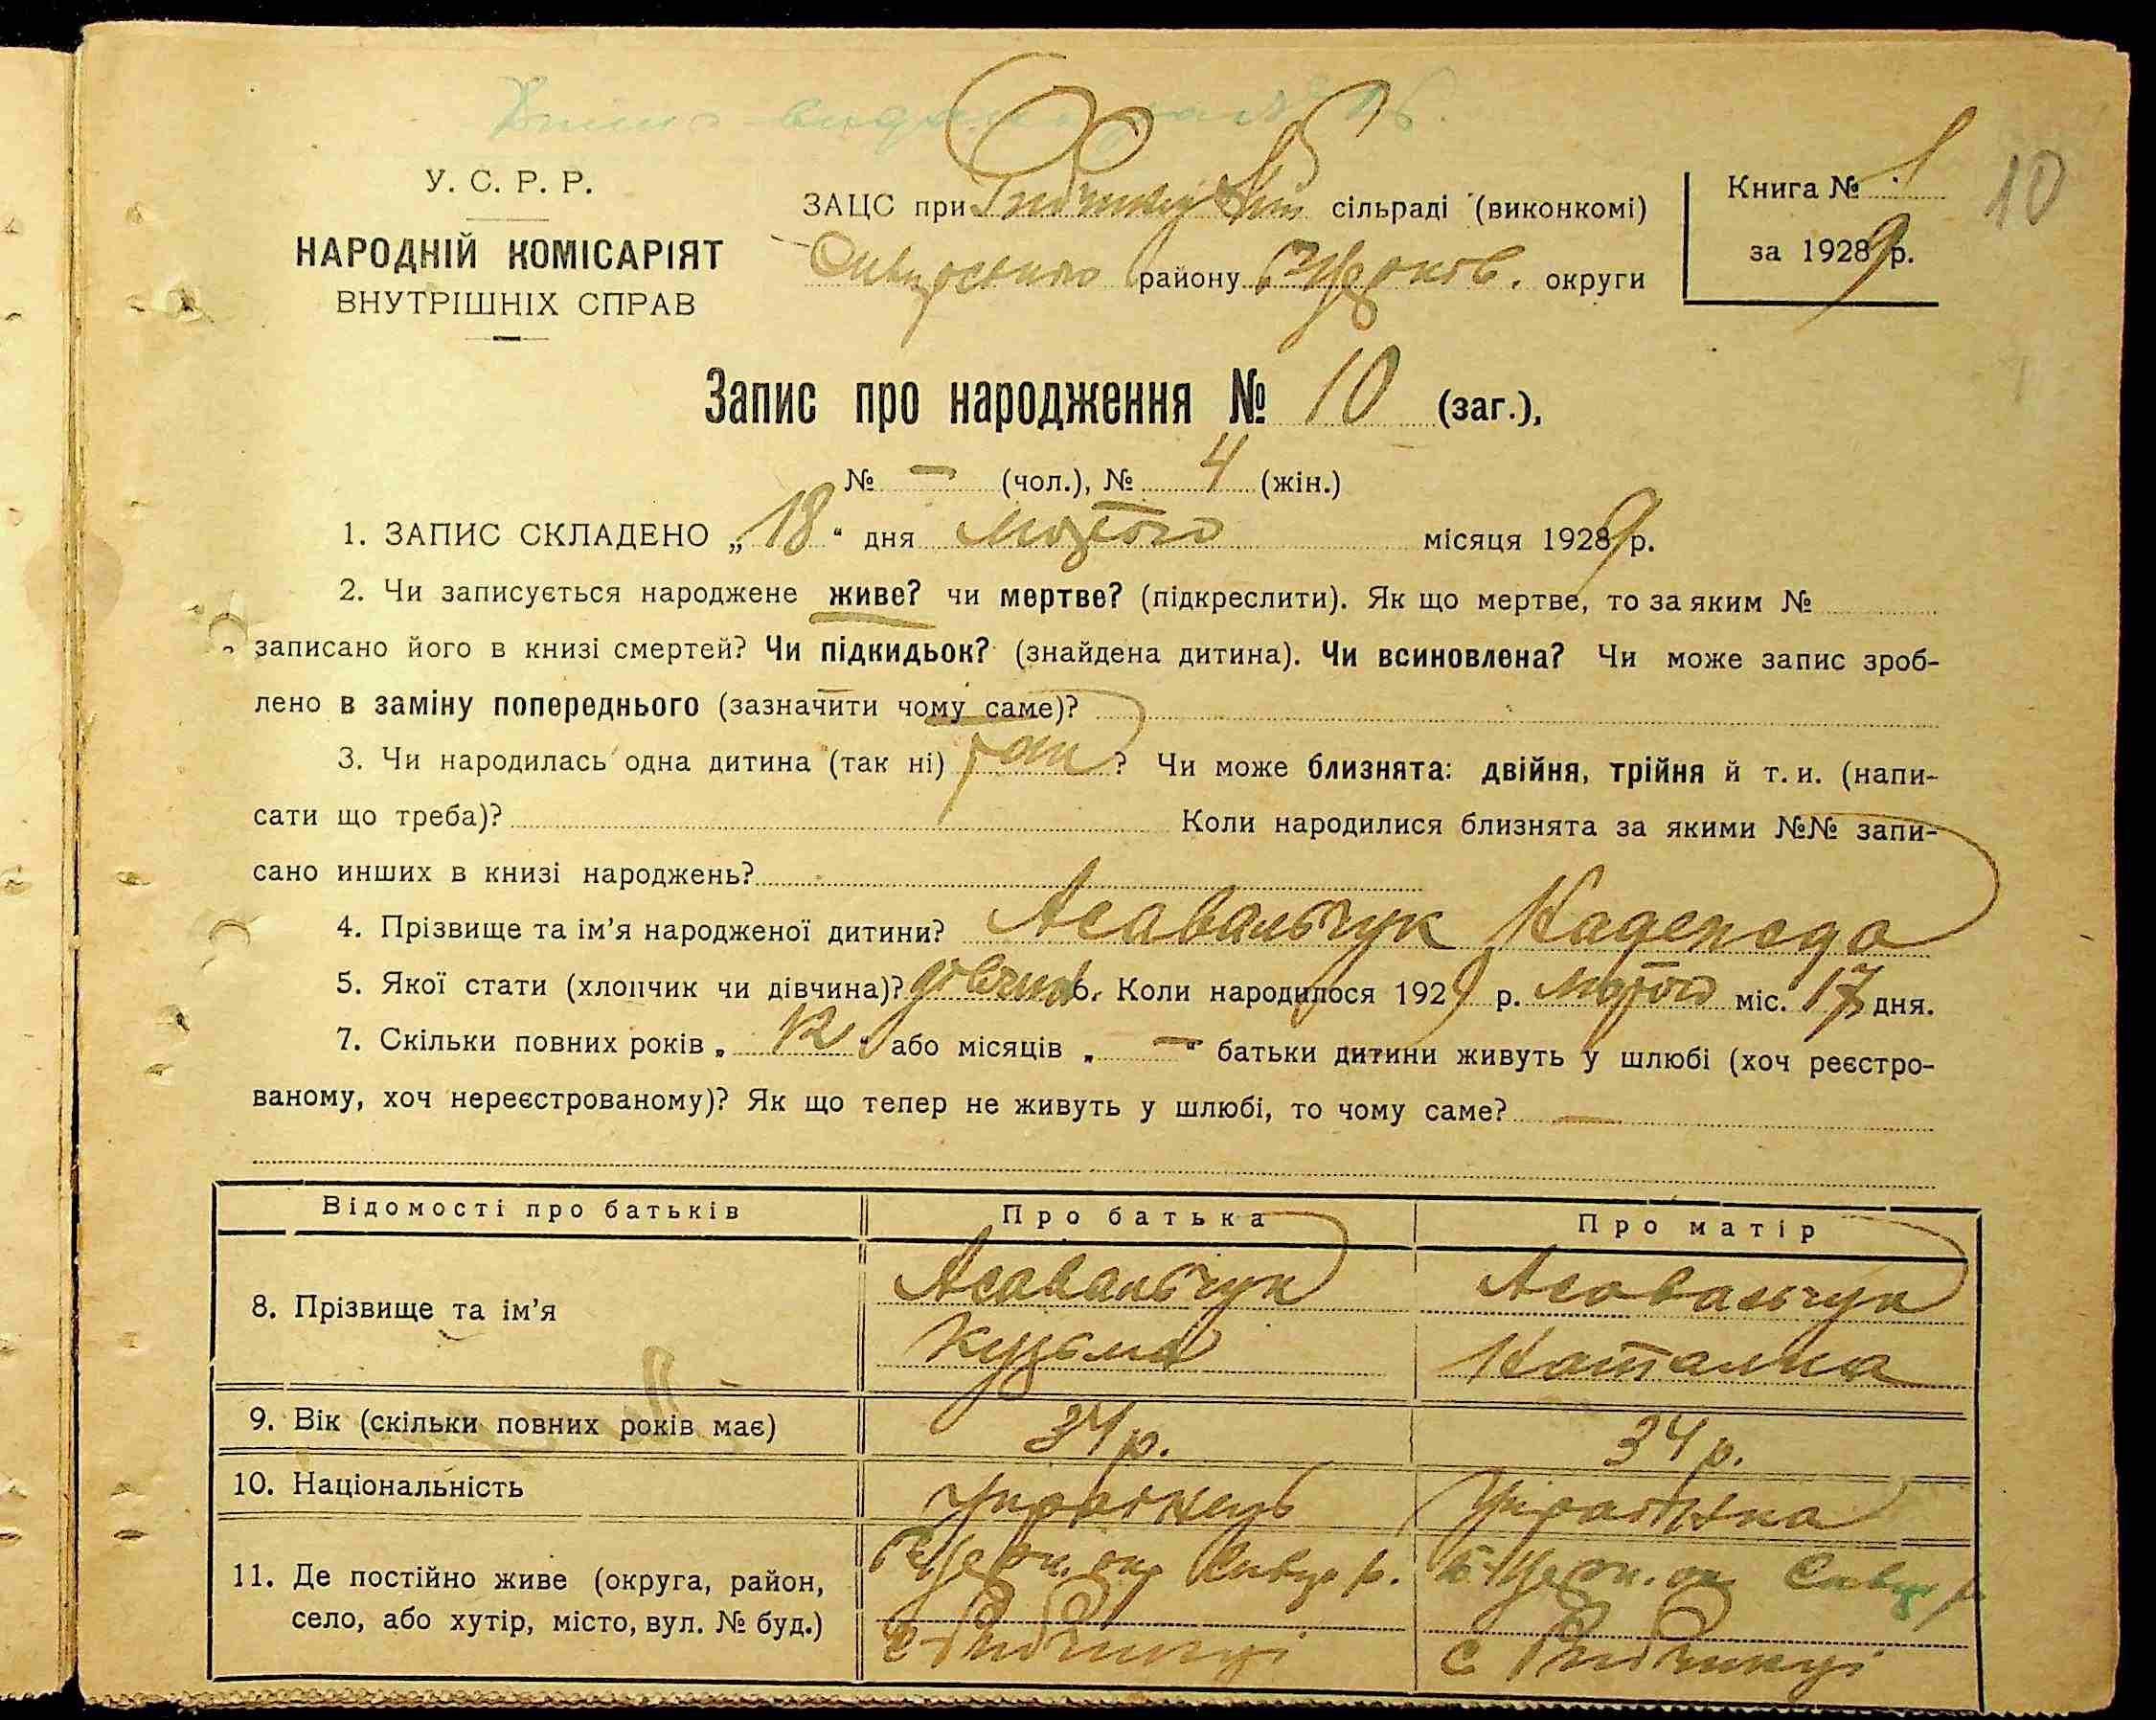 10
У. С. Р. Р.
НАРОДНІЙ КОМІСАРІЯТ
ВНУТРІШНІХ СПРАВ
ЗАЦС при сільраді (виконкомі)
району округи
Книга № 1
за 1929 р.
Запис про народження № 10 (заг.),
№ — (чол.), № 4 (жін.)
1. ЗАПИС СКЛАДЕНО „18“ дня лютого місяця 1929 р.
2. Чи записується народжене живе? чи мертве? (підкреслити). Як що мертве, то за яким №
записано його в книзі смертей? Чи підкидьок? (знайдена дитина). Чи всиновлена? Чи може запис зроб-
лено в заміну попереднього (зазначити чому саме)?
3. Чи народилась одна дитина (так ні) так? Чи може близнята: двійня, трійня й т. и. (напи-
сати що треба)? Коли народилися близнята за якими №№ запи-
сано инших в книзі народжень?
4. Прізвище та ім’я народженої дитини? Асавальчук Надежда
5. Якої стати (хлопчик чи дівчина)? дівчина 6. Коли народилося 1929 р. лютого міс. 17 дня.
7. Скільки повних років „ 12 “ або місяців „ — “ батьки дитини живуть у шлюбі (хоч реєстро-
ваному, хоч нереєстрованому)? Як що тепер не живуть у шлюбі, то чому саме? —
Відомості про батьків Про батька Про матір
8. Прізвище та ім’я Асавальчук Асавальчук
Кузьма Наталка
9. Вік (скільки повних років має) 34 р. 34 р.
10. Національність Українець Українка
11. Де постійно живе (округа, район,
село, або хутір, місто, вул. № буд.)